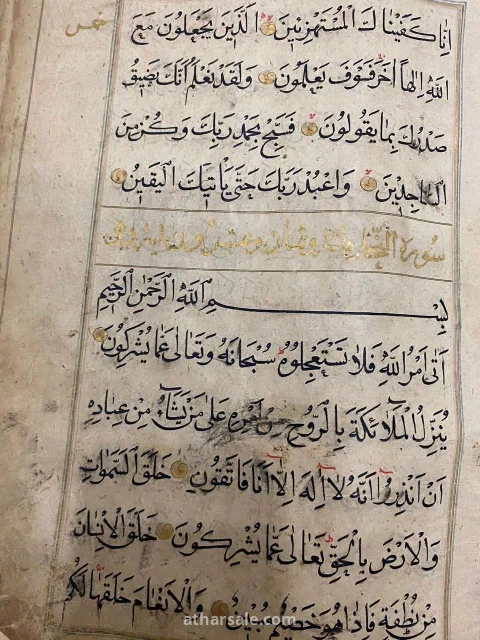 خمس
اِنَّا كَفَيْنَاكَ الْمُسْتَهْزِئِينَ الَّذِينَ يَجْعَلُونَ مَعَ
اللّٰهِ اِلٰهاً اٰخَرَ فَسَوْفَ يَعْلَمُونَ وَلَقَدْ نَعْلَمُ اَنَّكَ يَضِيقُ
صَدْرُكَ بِمَا يَقُولُونَ فَسَبِّحْ بِحَمْدِ رَبِّكَ وَكُنْ مِنَ
السَّاجِدِينَ وَاعْبُدْ رَبَّكَ حَتَّى يَأْتِيَكَ الْيَقِينُ
سورة النحل مائة وثمان وعشرون اية
بِسْمِ اللّٰهِ الرَّحْمٰنِ الرَّحِيمِ
اَتٰى اَمْرُ اللّٰهِ فَلَا تَسْتَعْجِلُوهُ سُبْحَانَهُ وَتَعَالٰى عَمَّا يُشْرِكُونَ
يُنَزِّلُ الْمَلَآئِكَةَ بِالرُّوحِ مِنْ اَمْرِهِ عَلٰى مَنْ يَشَآءُ مِنْ عِبَادِهِ
اَنْ اَنْذِرُوا اَنَّهُ لَا اِلٰهَ اِلَّا اَنَا فَاتَّقُونِ خَلَقَ السَّمٰوَاتِ
وَالْاَرْضَ بِالْحَقِّ تَعَالٰى عَمَّا يُشْرِكُونَ خَلَقَ الْاِنْسَانَ
مِنْ نُطْفَةٍ فَاِذَا هُوَ خَصِيمٌ مُبِينٌ وَالْاَنْعَامَ خَلَقَهَا لَكُمْ
atharsale.com